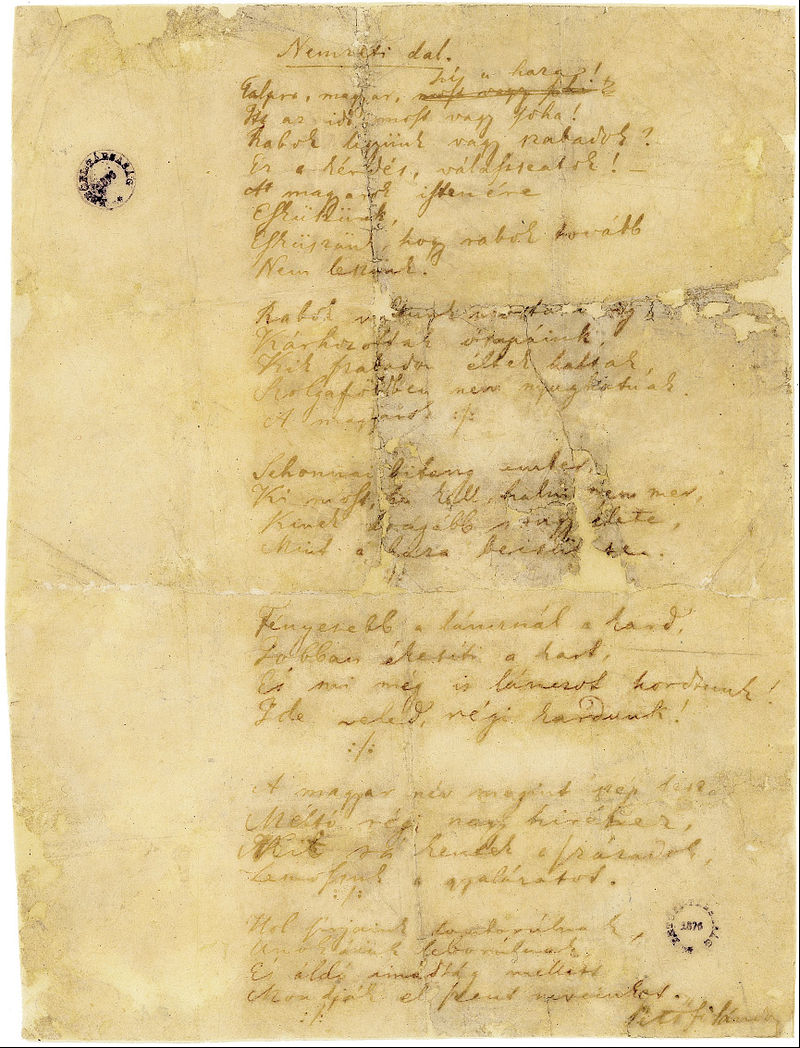 Nemzeti dal.
hí a haza!
Talpra, magyar, most vagy soha
Itt az idő, most vagy soha!
Rabok legyünk vagy szabadok?
Ez a kérdés, válasszatok! –
A magyarok istenére
Esküszünk,
Esküszünk, hogy rabok tovább
Nem leszünk.
Rabok voltunk mostanáig
Kárhozottak ősapáink,
Kik szabadon éltek haltak,
Szolgaföldben nem nyughatnak.
A magyarok :/:
Sehonnai bitang ember,
Ki most, ha kell, halni nem mer,
Kinek drágább rongy élete,
Mint a haza becsülete.
:/:
Fényesebb a láncznál a kard,
Jobban ékesíti a kart,
És mi még is lánczot hordtunk!
Ide veled, régi kardunk!
:/:
A magyar név megint szép lesz
Méltó régi nagy hiréhez,
Mit rá kentek a századok,
Lemossuk a gyalázatot.
:/:
Hol sirjaink domborúlnak,
Unokáink leborúlnak
És áldó imádság mellett
Mondják el szent neveinket.
:/:
Petőfi Sándor
1876